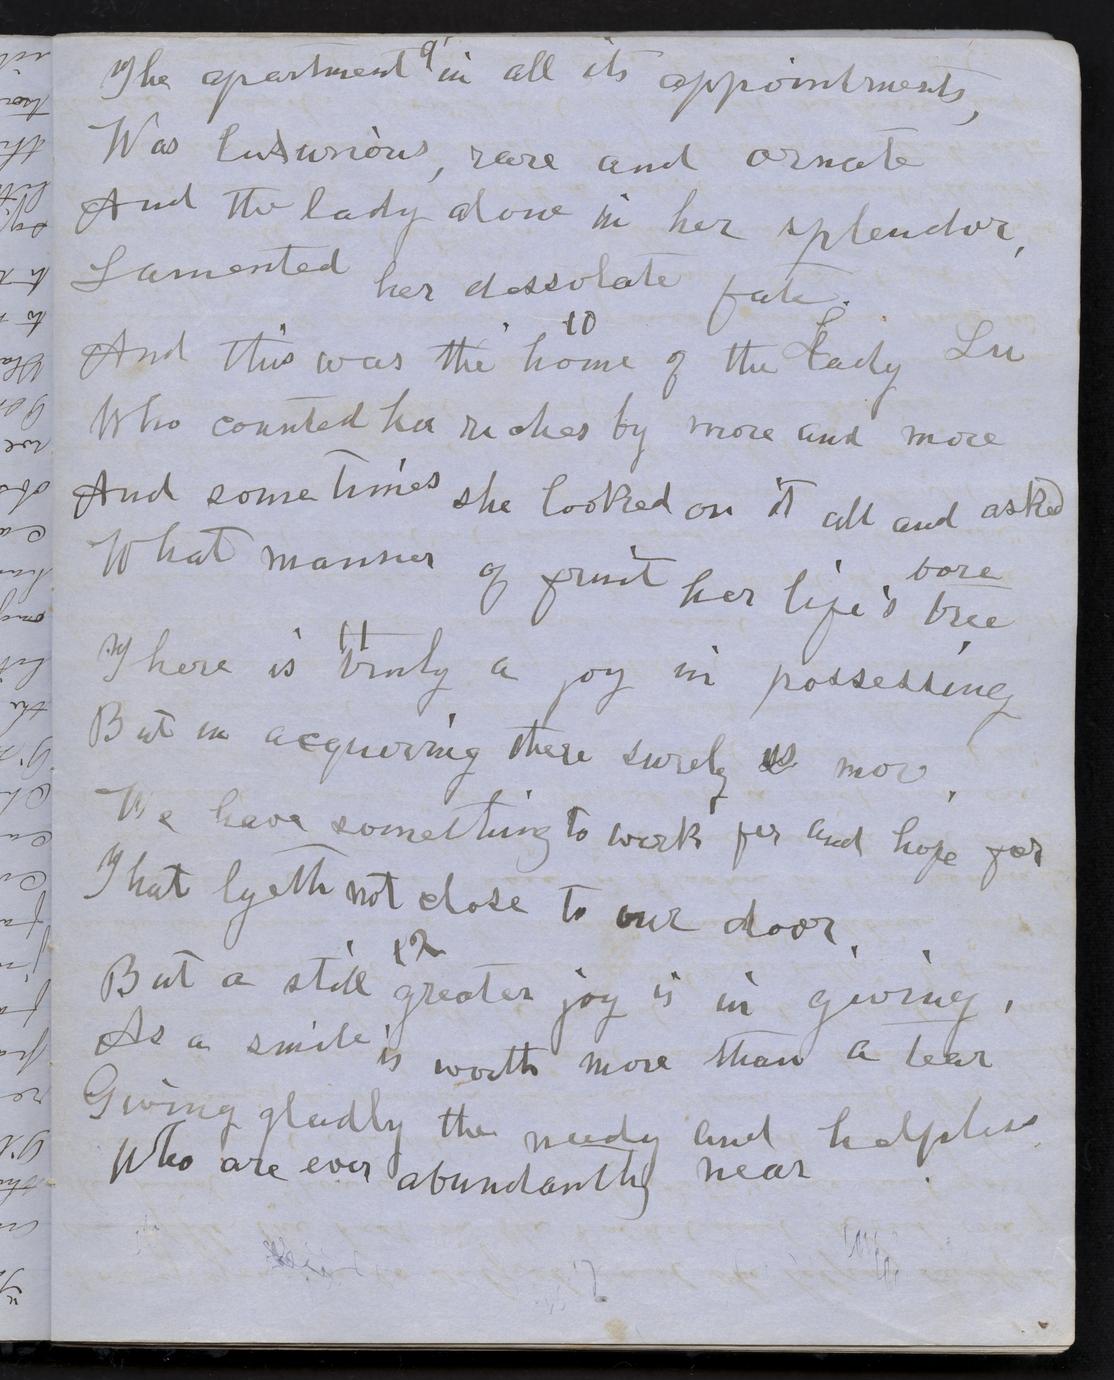 9
The apartment in all its appointments,
Was luxurious, rare and ornate
And the lady alone in her splendor,
Lamented her dessolate fate.
10
And this was the home of the Lady Lu
Who counted her riches by more and more
And sometimes she looked on it all and asked
What manner of fruit her life's tree bore
11
There is truly a joy in possessing
But in acquiring there surely is mor
We have something to work for and hope for
That lyeth not close to our door.
12
But a still greater joy is in giving,
As a smile is worth more than a tear
Giving gladly the needy and helpless
Who are ever abundantly near.